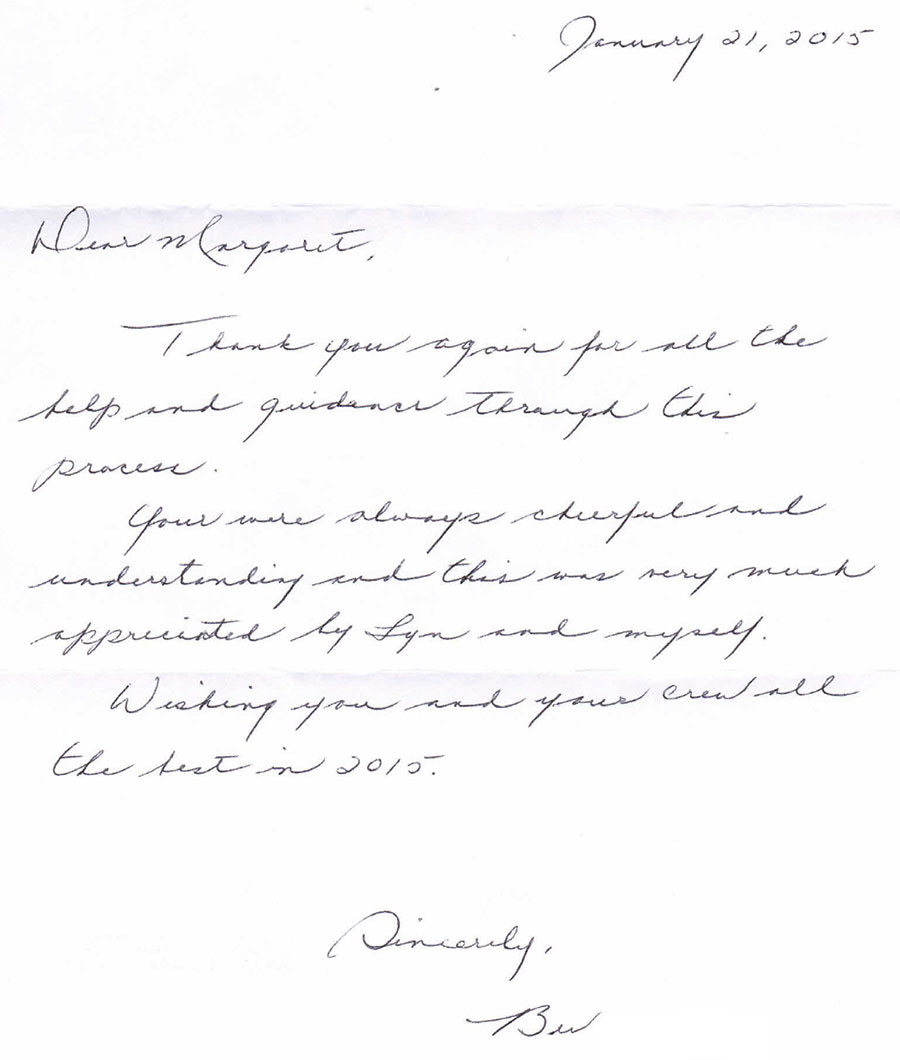 January 21, 2015
Dear Margaret,
Thank you again for all the
help and guidance through this
process.
Your were always cheerful and
understanding and this was very much
appreciated by Lyn and myself.
Wishing you and your crew all
the best in 2015.
Sincerely,
Bev